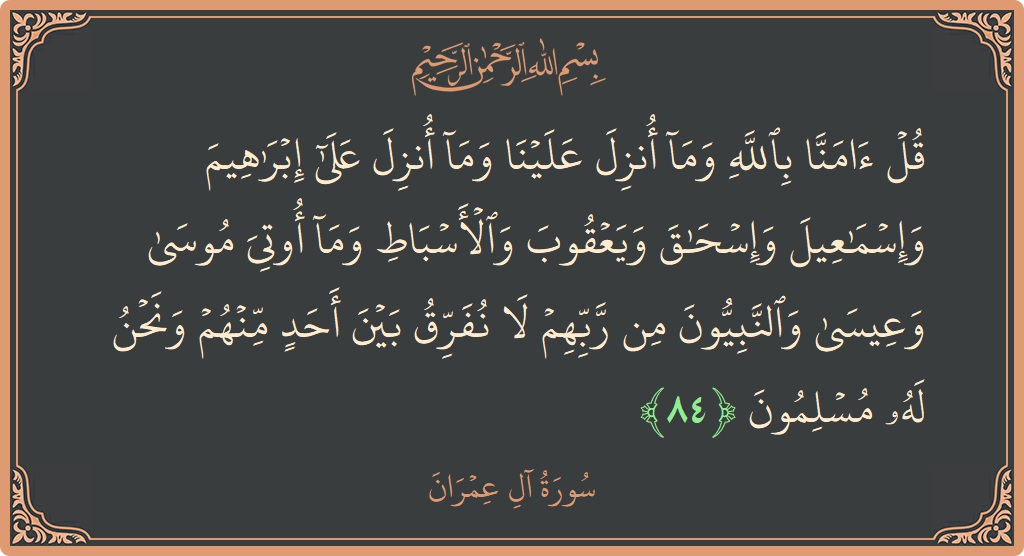 بِسْمِ اللَّهِ الرَّحْمَٰنِ الرَّحِيمِ
قُلْ ءَامَنَّا بِٱللَّهِ وَمَآ أُنزِلَ عَلَيْنَا وَمَآ أُنزِلَ عَلَىٰٓ إِبْرَٰهِيمَ
وَإِسْمَٰعِيلَ وَإِسْحَٰقَ وَيَعْقُوبَ وَٱلْأَسْبَاطِ وَمَآ أُوتِىَ مُوسَىٰ
وَعِيسَىٰ وَٱلنَّبِيُّونَ مِن رَّبِّهِمْ لَا نُفَرِّقُ بَيْنَ أَحَدٍ مِّنْهُمْ وَنَحْنُ
لَهُۥ مُسْلِمُونَ ﴿٨٤﴾
سُورَةُ آلِ عِمْرَانَ